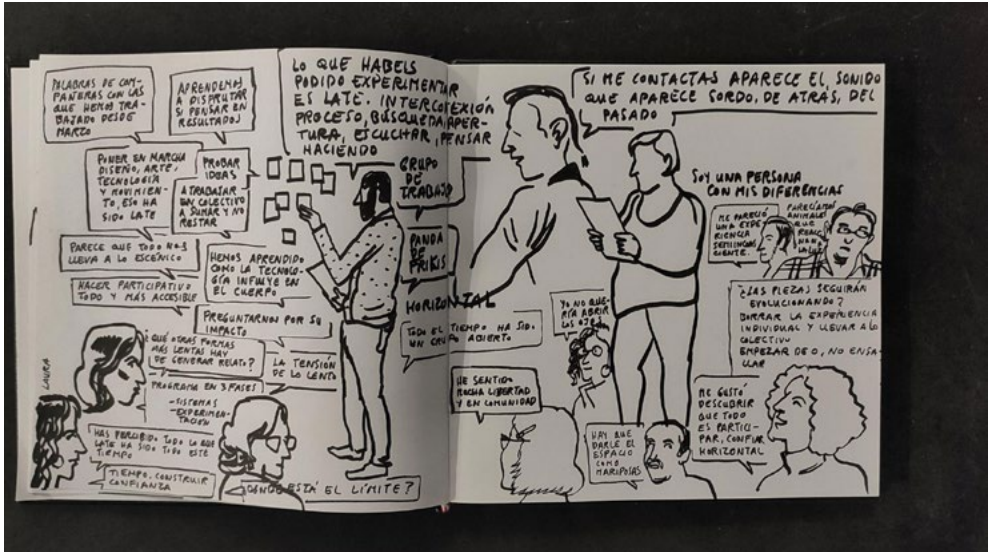 PALABRAS DE COM-
PAÑERAS CON LAS
QUE HEMOS TRA-
BAJADO DESDE
MARZO
APRENDEMOS
A DISFRUTAR
SI PENSAR EN
RESULTADOS
LO QUE HABEIS
PODIDO EXPERIMENTAR
ES LATE. INTERCONEXIÓN
PROCESO, BÚSQUEDA, APER-
TURA, ESCUCHAR, PENSAR
HACIENDO
PONER EN MARCHA
DISEÑO, ARTE,
TECNOLOGÍA
Y MOVIMIEN-
TO, ESO HA
SIDO LATE
PROBAR
IDEAS
A TRABAJAR
EN COLECTIVO
A SUMAR Y NO
RESTAR
GRUPO
DE
TRABAJO
PARECE QUE TODO NOS
LLEVA A LO ESCÉNICO
HEMOS APRENDIDO
COMO LA TECNOLO-
GÍA INFLUYE EN
EL CUERPO
PANDA
DE
FRIKIS
HACER PARTICIPATIVO
TODO Y MÁS ACCESIBLE
HORIZONTAL
PREGUNTARNOS POR SU
IMPACTO
TODO EL TIEMPO HA SIDO
UN GRUPO ABIERTO
¿QUÉ OTRAS FORMAS
MÁS LENTAS HAY
DE GENERAR RELATO?
LA TENSIÓN
DE LO LENTO
PROGRAMA EN 3 FASES
-SISTEMAS
-EXPERIMEN-
TACIÓN
LAURA
HAS PERCIBIDO TODO LO QUE
LATE HA SIDO TODO ESTE
TIEMPO
TIEMPO, CONSTRUIR
CONFIANZA
¿DÓNDE ESTÁ EL LÍMITE?
SI ME CONTACTAS APARECE EL SONIDO
QUE APARECE SORDO, DE ATRÁS, DEL
PASADO
SOY UNA PERSONA
CON MIS DIFERENCIAS
ME PARECIÓ
UNA EXPE-
RIENCIA
SEMIINCONS
CIENTE.
PARECÍAMOS
ANIMALES
QUE
YO NO QUE-
RÍA ABRIR
LOS OJOS
¿LAS PIEZAS SEGUIRÁN
EVOLUCIONANDO?
BORRAR LA EXPERIENCIA
INDIVIDUAL Y LLEVAR A LO
COLECTIVO
EMPEZAR DE 0, NO ENSA-
LLAR
HE SENTIDO
MUCHA LIBERTAD
Y EN COMUNIDAD
HAY QUE
DARLE EL
ESPACIO
COMO
MARIPOSAS
ME GUSTÓ
DESCUBRIR
QUE TODO
ES PARTICI-
PAR, CONFIAR
HORIZONTAL